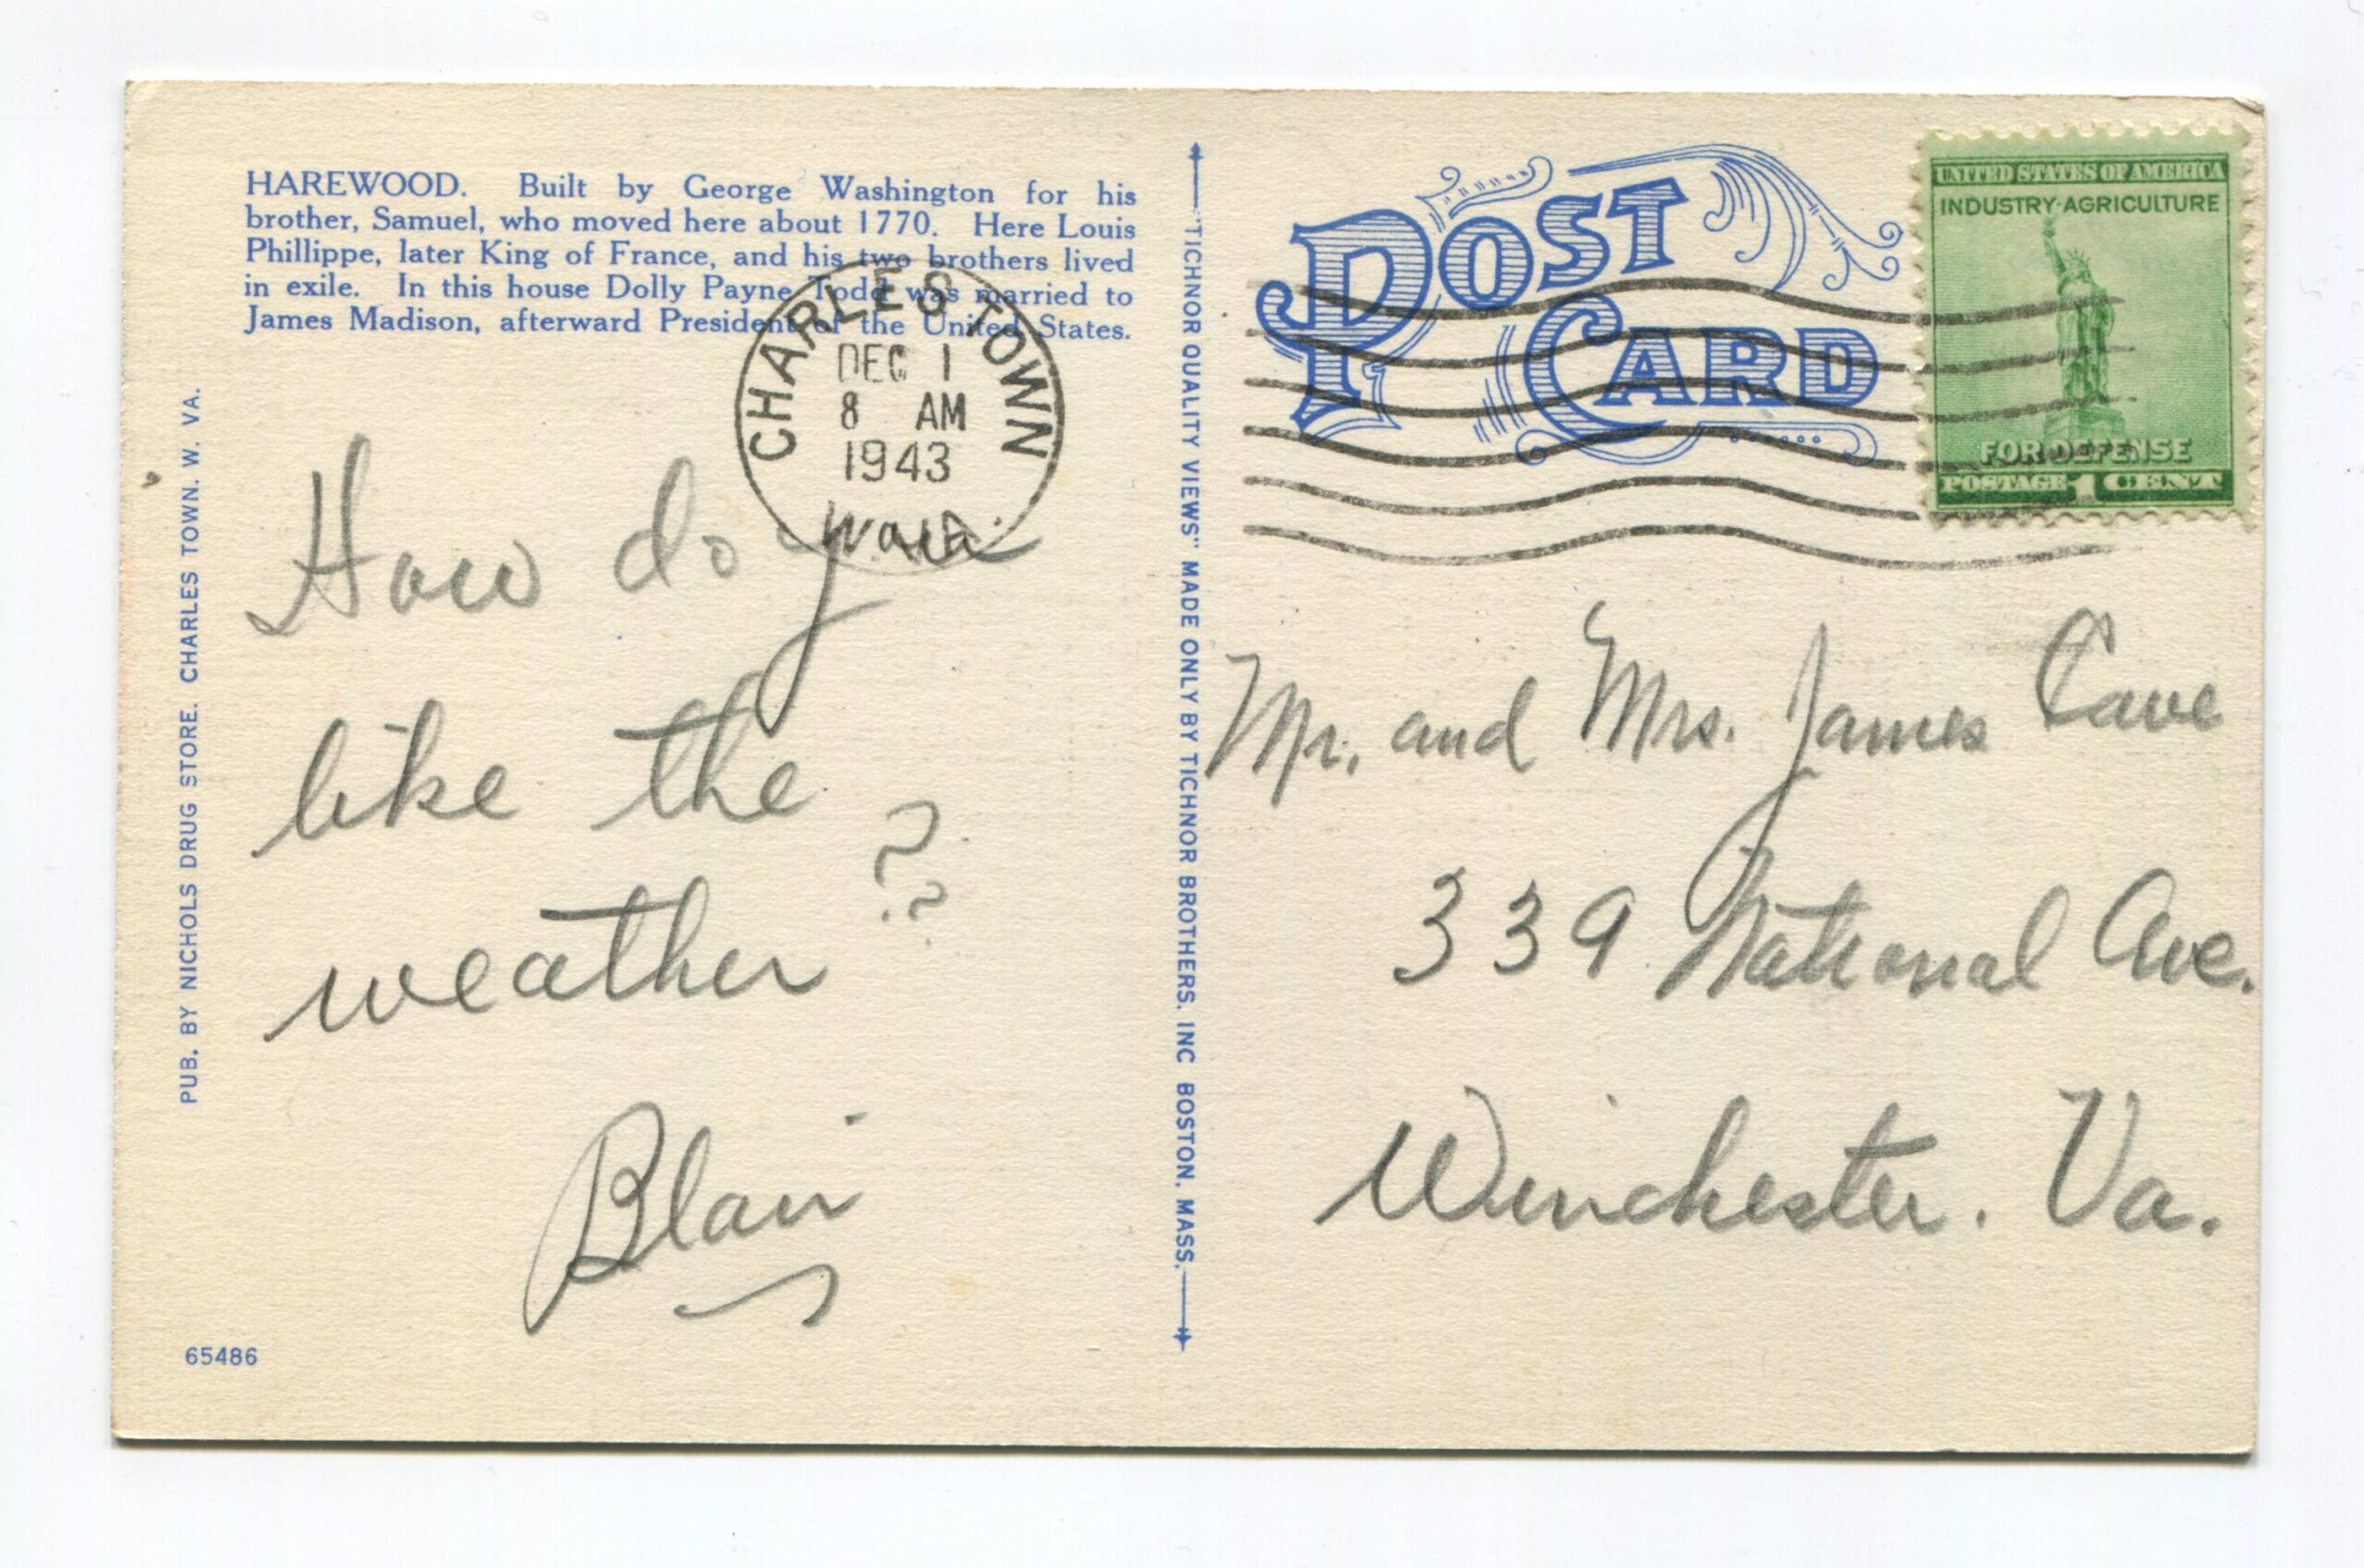 HAREWOOD. Built by George Washington for his
brother, Samuel, who moved here about 1770. Here Louis
Phillippe, later King of France, and his two brothers lived
in exile. In this house Dolly Payne Todd was married to
James Madison, afterward President of the United States.
CHARLES TOWN
DEC 1
8 AM
1943
W. VA.
How do you
like the
weather ??
Blair
65486
PUB. BY NICHOLS DRUG STORE. CHARLES TOWN. W. VA.
"TICHNOR QUALITY VIEWS" MADE ONLY BY TICHNOR BROTHERS. INC BOSTON. MASS.
POST
CARD
UNITED STATES OF AMERICA
INDUSTRY·AGRICULTURE
FOR DEFENSE
POSTAGE 1 CENT
Mr. and Mrs. James Cave
339 National Ave.
Winchester. Va.